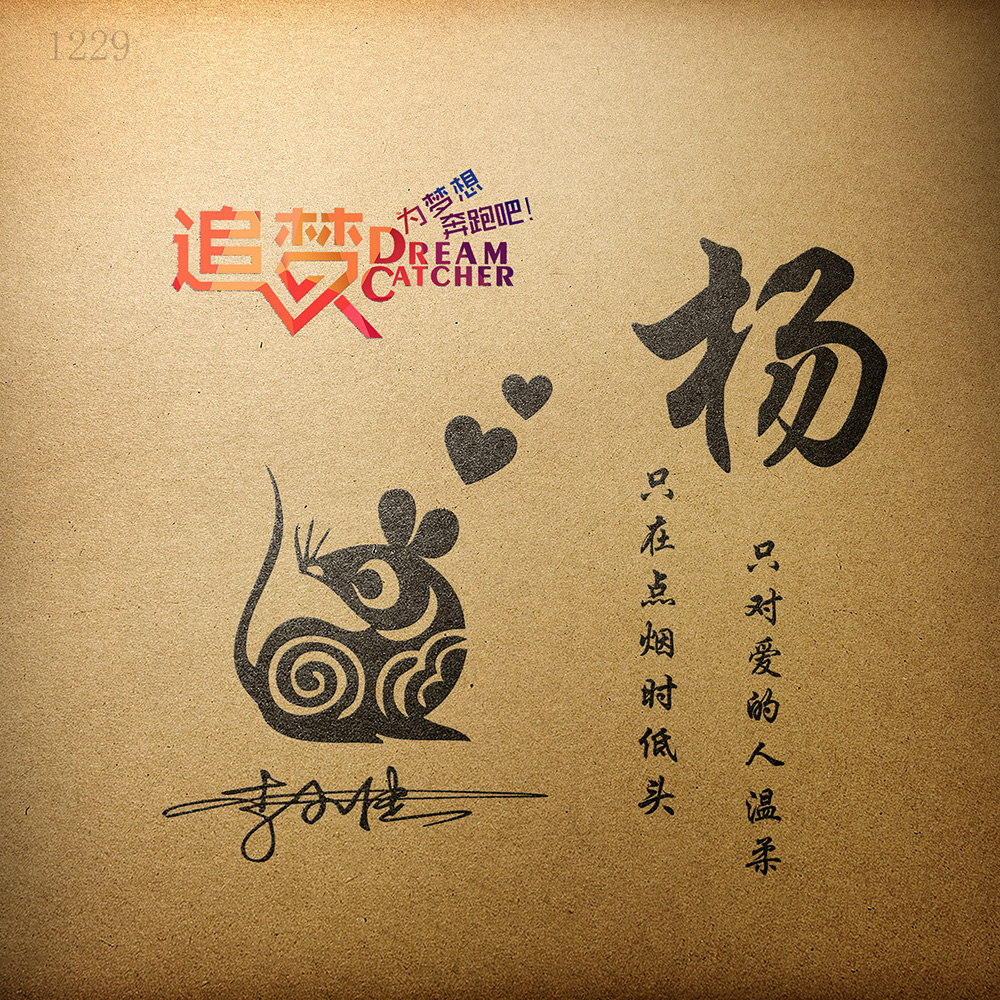 1229
追梦
为梦想
奔跑吧!
DREAM
CATCHER
杨
只在点烟时低头
只对爱的人温柔